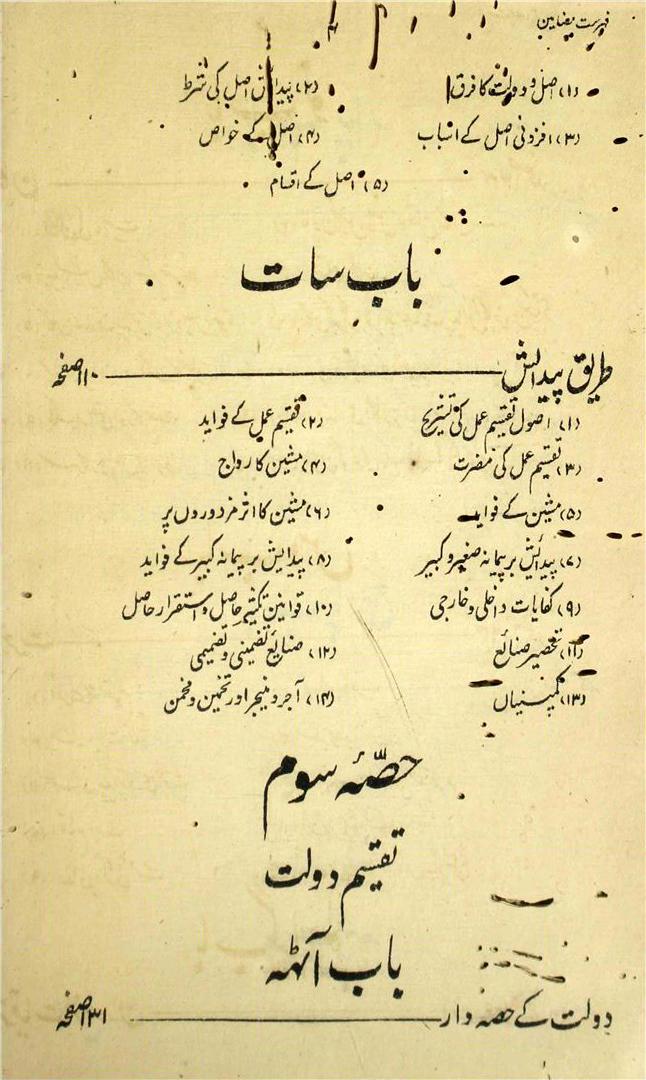 فہرست مضامین
۴
(۱) اصل و دولت کا فرق (۲) پیدائش اصل کی شرط
(۳) افزونی اصل کے اسباب (۴) اصل کے خواص
(۵) اصل کے اقسام
باب سات
طریق پیدایش ۱۱۰ صفحہ
(۱) اصول تقسیم عمل کی تشریح (۲) تقسیم عمل کے فواید
(۳) تقسیم عمل کی مضرت (۴) مشین کا رواج
(۵) مشین کے فواید (۶) مشین کا اثر مزدوروں پر
(۷) پیدایش بر پیمانہ صغیر و کبیر (۸) پیدایش بر پیمانہ کبیر کے فواید
(۹) کفایات داخلی و خارجی (۱۰) قوانین تکثیر حاصل و استقرار حاصل
(۱۱) تحصیر صنائع (۱۲) صنایع تضمینی و تضمیمی
(۱۳) کمپنیاں (۱۴) آجر و منیجر اور تخمین و مخمن
حصّۂ سوم
تقسیم دولت
باب آٹھہ
دولت کے حصہ دار ۱۳۱ صفحہ